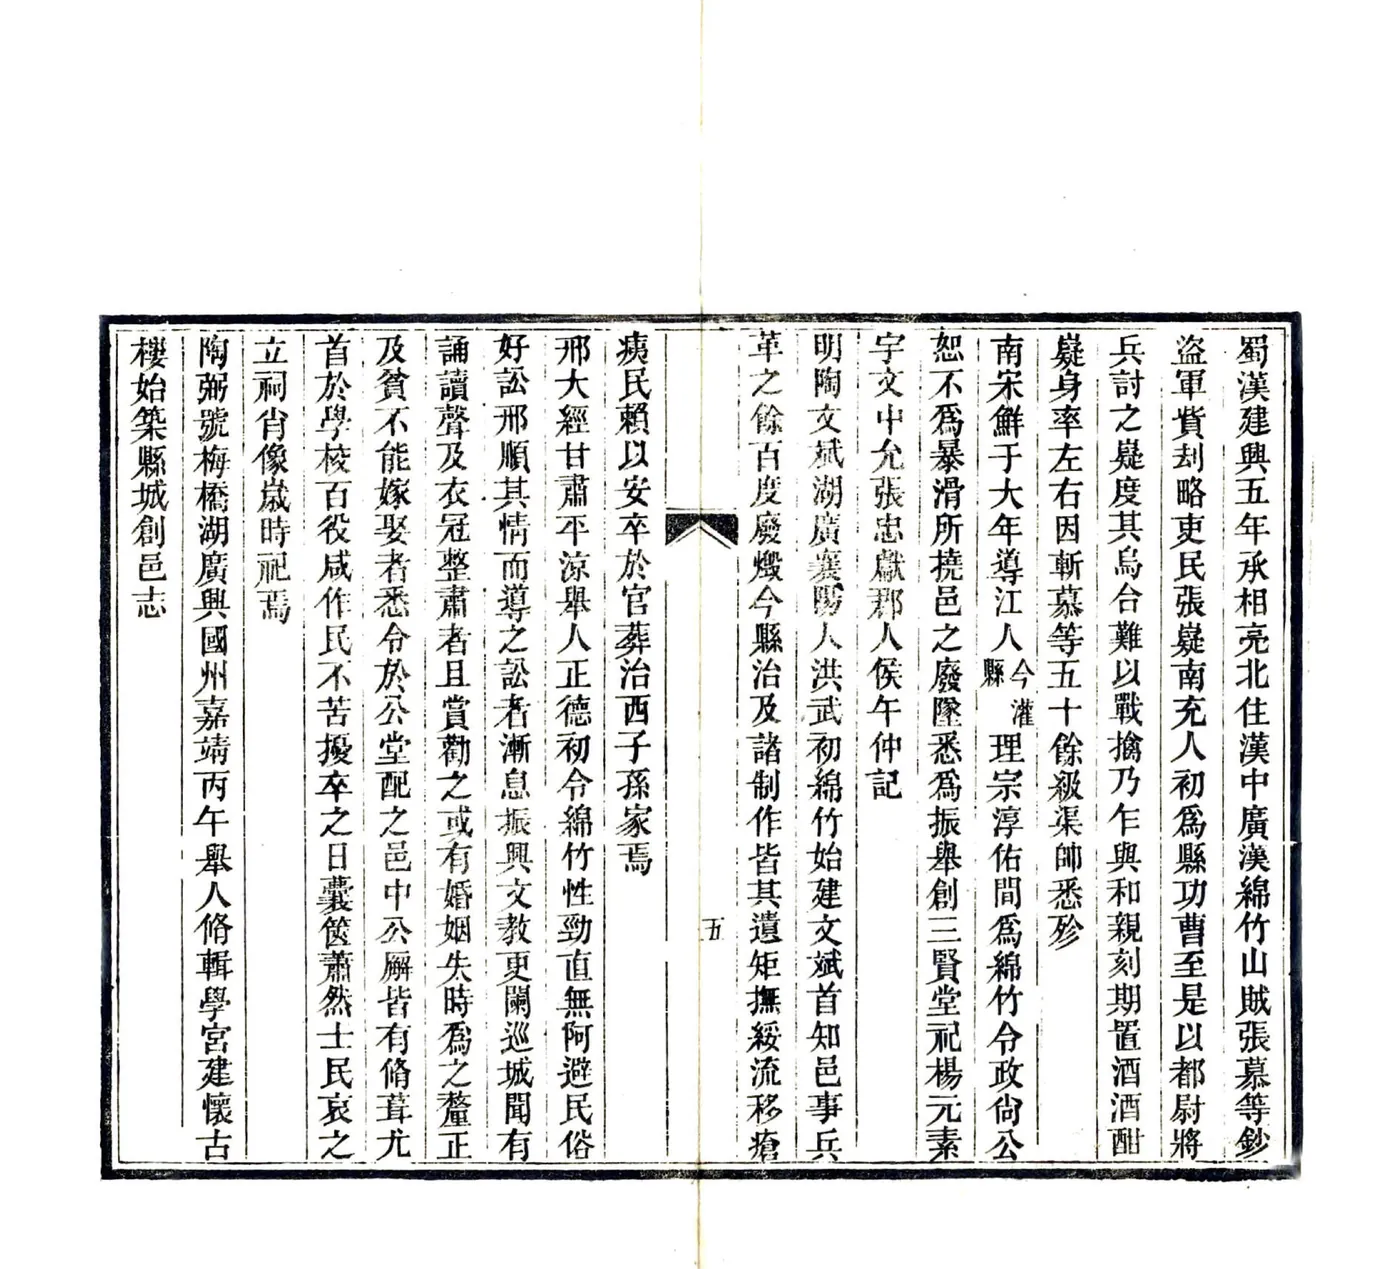 蜀漢建興五年承相亮北住漢中廣漢綿竹山賊張慕等鈔
盜軍貲刦略吏民張嶷南充人初爲縣功曹至是以都尉將
兵討之嶷度其烏合難以戰擒乃乍與和親刻期置酒酒酣
嶷身率左右因斬慕等五十餘級渠帥悉殄
南宋鮮于大年導江人今灌縣理宗淳佑間爲綿竹令政尙公
恕不爲暴滑所撓邑之廢墜悉爲振舉創三賢堂祀楊元素
宇文中允張忠獻郡人侯午仲記
明陶文斌湖廣襄陽人洪武初綿竹始建文斌首知邑事兵
革之餘百度廢燬今縣治及諸制作皆其遺矩撫綏流移瘡
五
痍民賴以安卒於官葬治西子孫家焉
邢大經甘肅平涼舉人正德初令綿竹性勁直無阿避民俗
好訟邢順其情而導之訟者漸息振興文教更闌巡城聞有
誦讀聲及衣冠整肅者且賞勸之或有婚姻失時爲之釐正
及貧不能嫁娶者悉令於公堂配之邑中公廨皆有脩葺尤
首於學校百役咸作民不苦擾卒之日囊篋蕭然士民哀之
立祠肖像歲時祀焉
陶弼號梅橋湖廣興國州嘉靖丙午舉人脩輯學宮建懷古
樓始築縣城創邑志